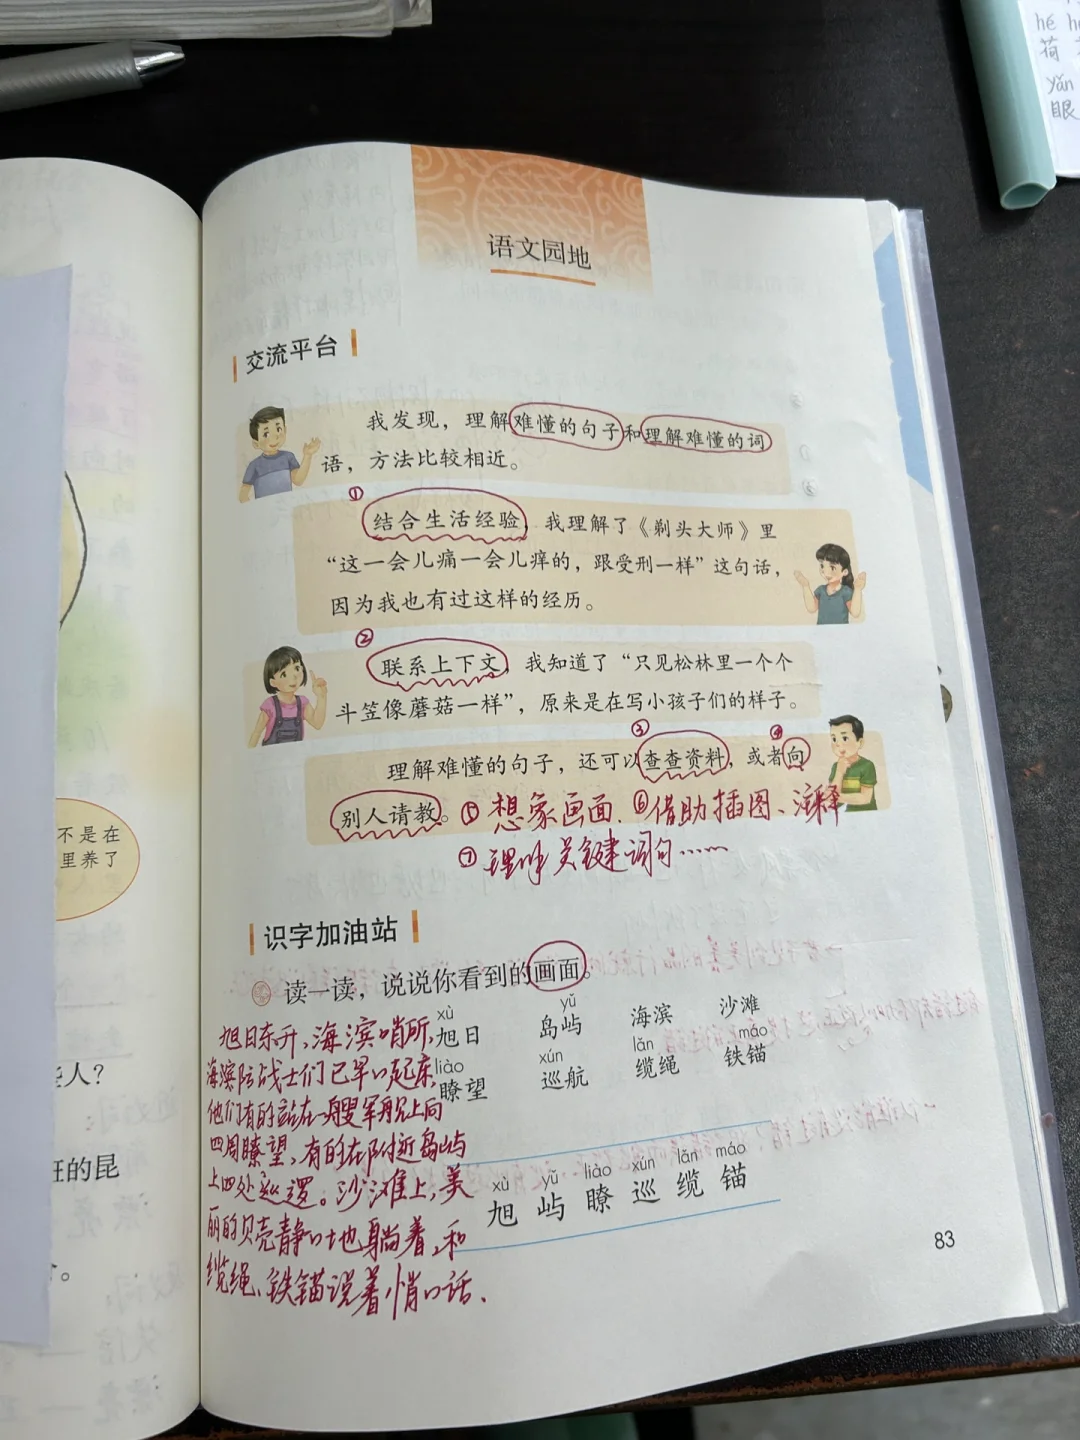 hé
荷
yǎn
眼
语文园地
交流平台
我发现，理解难懂的句子和理解难懂的词
语，方法比较相近。
①
结合生活经验，我理解了《剃头大师》里
“这一会儿痛一会儿痒的，跟受刑一样”这句话，
因为我也有过这样的经历。
②
联系上下文，我知道了“只见松林里一个个
斗笠像蘑菇一样”，原来是在写小孩子们的样子。
③ ④
理解难懂的句子，还可以查查资料，或者向
别人请教。⑤想象画面、⑥借助插图、注释
⑦理解关键词句……
不是在
里养了
识字加油站
读一读，说说你看到的画面。
xù yǔ
旭日 岛屿 海滨 沙滩
liào xún lǎn máo
瞭望 巡航 缆绳 铁锚
旭日东升，海滨哨所，
海滨防战士们已早早起床，
他们有的站在一艘军舰上向
四周瞭望，有的在附近岛屿
上四处巡逻。沙滩上，美
丽的贝壳静静地躺着，和
缆绳、铁锚说着悄悄话。
xù yǔ liào xún lǎn máo
旭 屿 瞭 巡 缆 锚
些人？
的昆
83